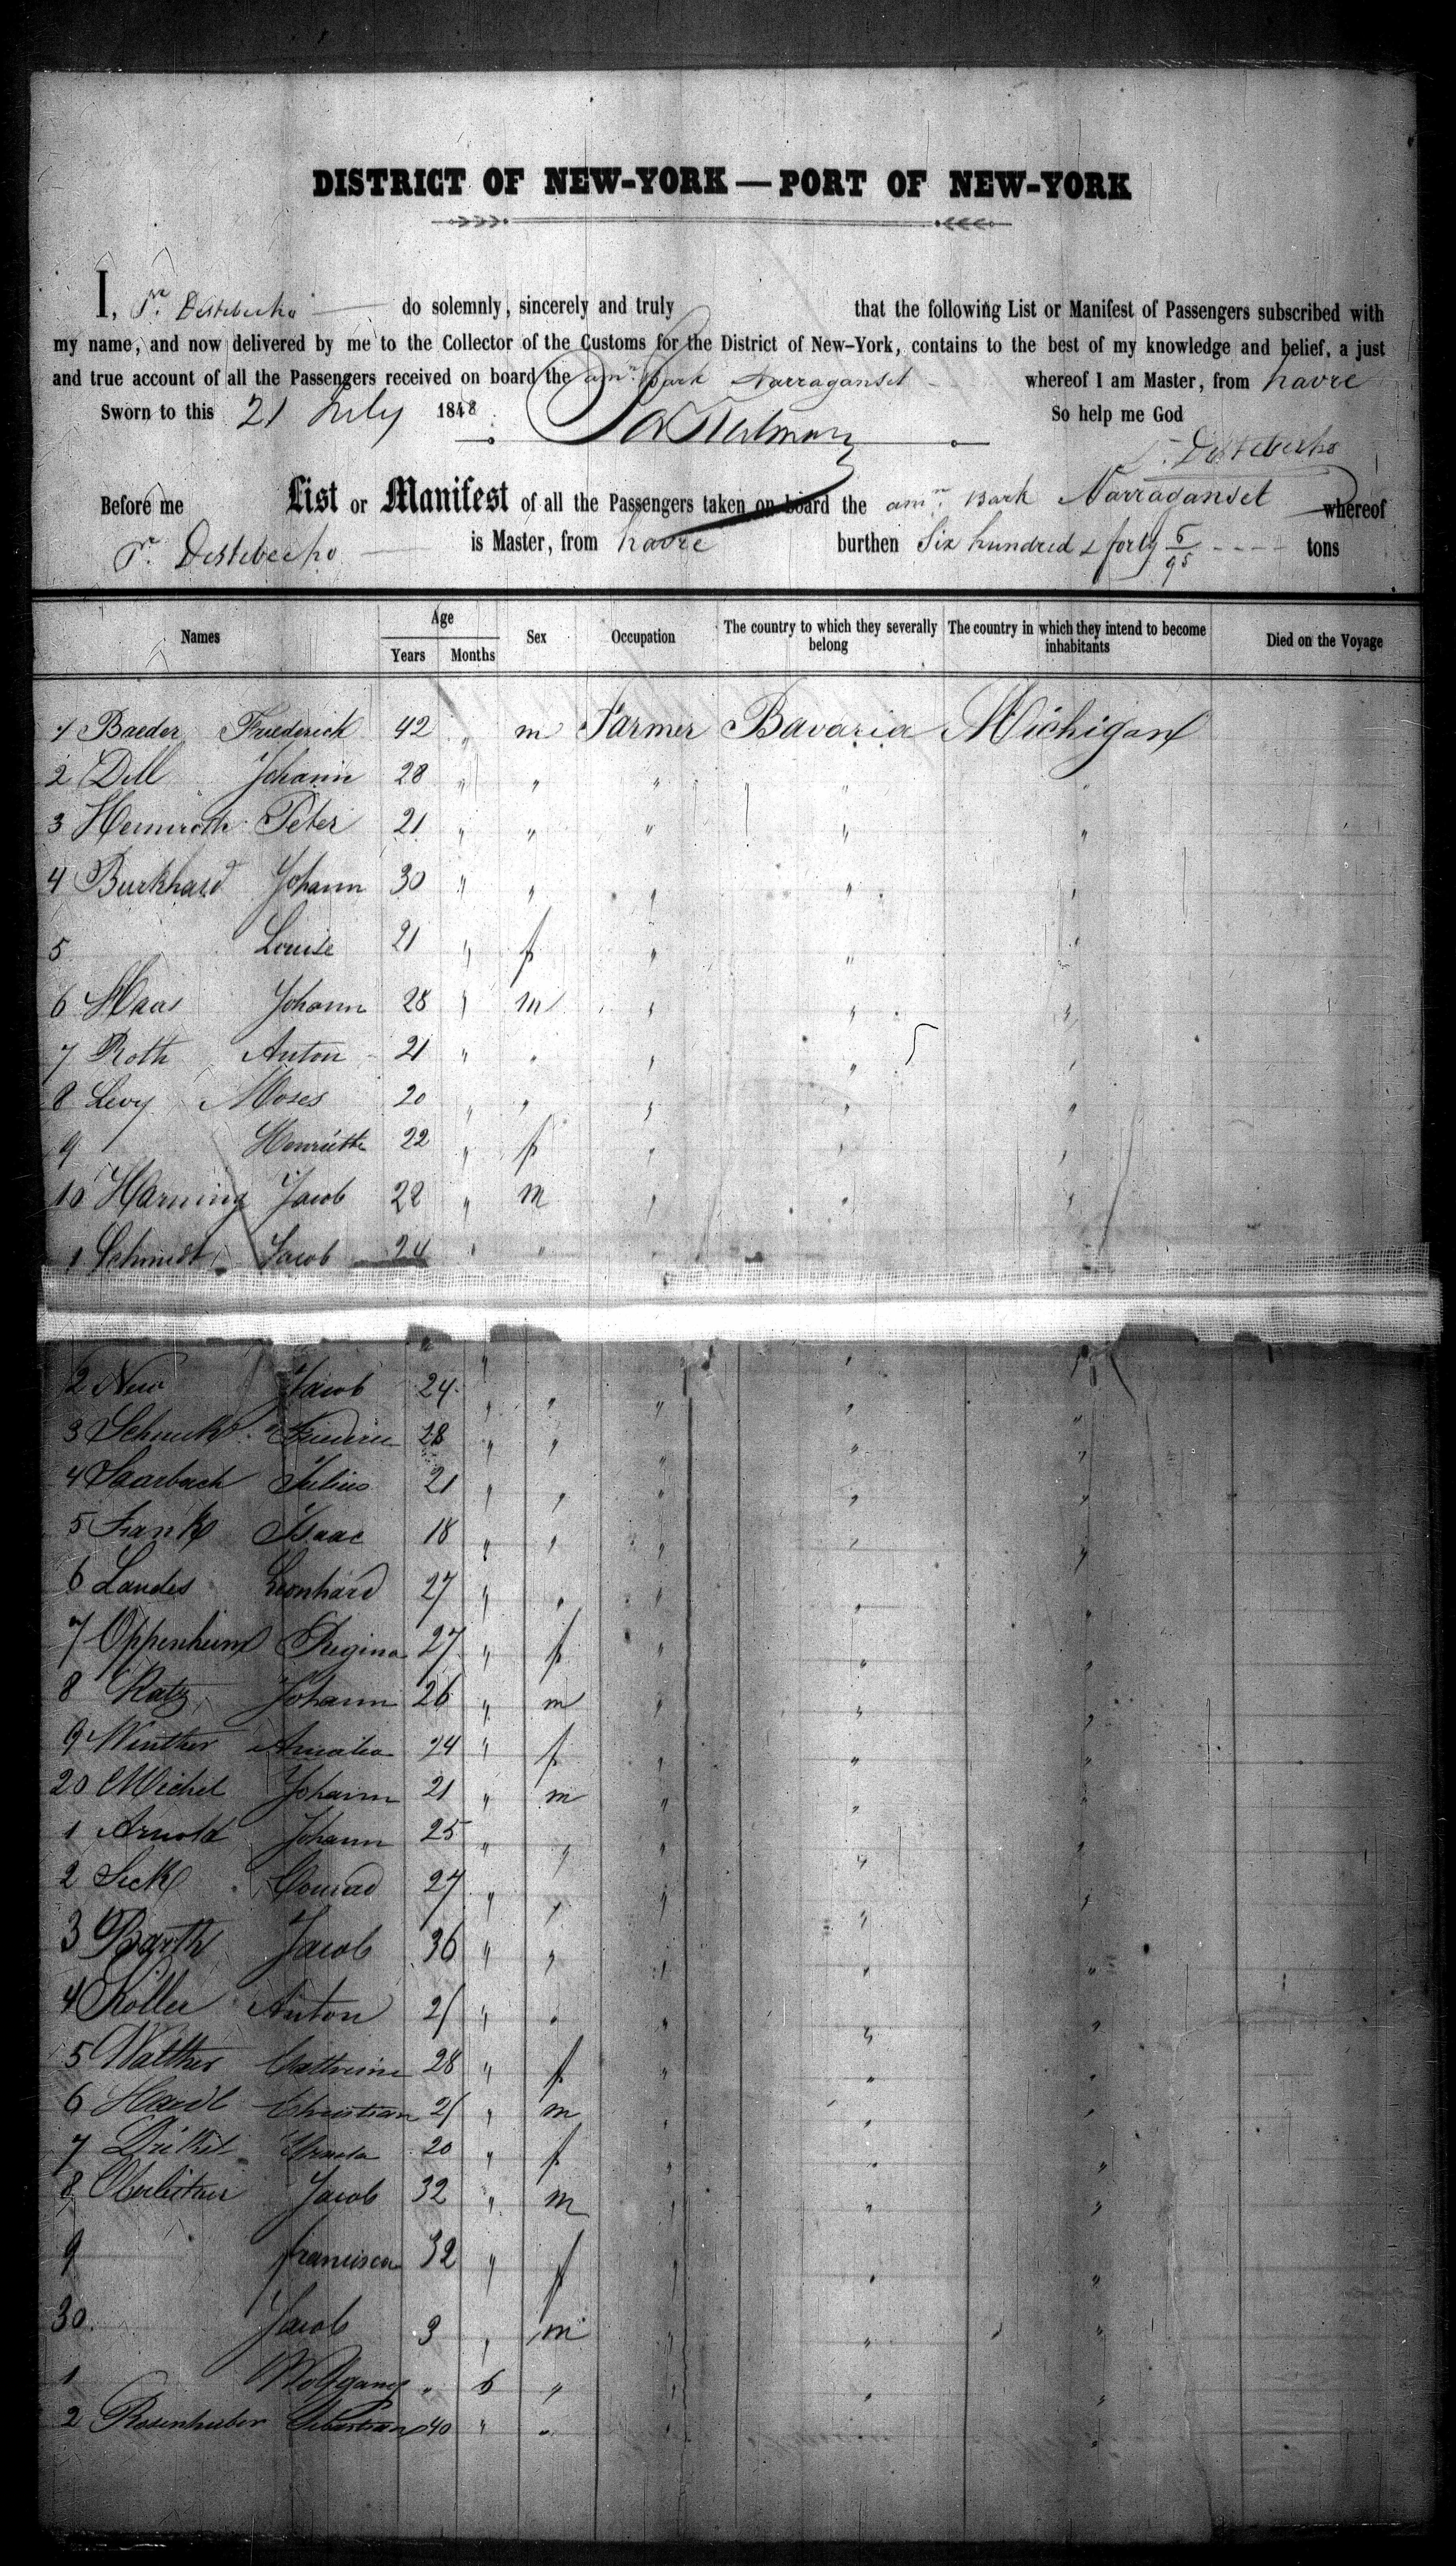 DISTRICT OF NEW-YORK — PORT OF NEW-YORK
I, Pr. Destebecho do solemnly, sincerely and truly that the following List or Manifest of Passengers subscribed with
my name, and now delivered by me to the Collector of the Customs for the District of New-York, contains to the best of my knowledge and belief, a just
and true account of all the Passengers received on board the amn. Bark Narraganset whereof I am Master, from havre
Sworn to this 21 July 1848 So help me God
Destebecho
Before me List or Manifest of all the Passengers taken on board the amn. Bark Narraganset whereof
Pr. Destebecho is Master, from havre burthen Six hundred & forty 6/95 tons
Names Age Years Months Sex Occupation The country to which they severally belong The country in which they intend to become inhabitants Died on the Voyage
1 Baeder Friederick 42 " m Farmer Bavaria Michigan
2 Dill Johann 28 " " " " "
3 Peter 21 " " " " "
4 Burkhard Johann 30 " " " " "
5 Louise 21 " f " " "
6 Haas Johann 28 " m " " "
7 Roth Anton 21 " " " " "
8 Levy Moses 20 " " " " "
9 Henriette 22 " f " " "
10 Harning Jacob 22 " m " " "
1 Schmidt Jacob 24 " "
2 Neu Jacob 24 " " " " "
3 Schuck 28 " " " " "
4 Saarbach Julius 21 " " " " "
5 Frank Isaac 18 " " " " "
6 Landes Leonhard 27 " " " " "
7 Oppenheim Regina 27 " f " " "
8 Katz Johann 26 " m " " "
9 Winther Amalia 24 " f " " "
20 Michel Johann 21 " m " " "
1 Arnold Johann 25 " " " " "
2 Seck Conrad 27 " " " " "
3 Barth Jacob 36 " " " " "
4 Koller Anton 21 " " " " "
5 Walther Cathrine 28 " f " " "
6 Christian 21 " m " " "
7 20 " f " " "
8 Jacob 32 " m " " "
9 francisca 32 " f " " "
30 Jacob 3 " m " " "
1 Wolfgang " 6 " " "
2 Rosenhuber Sebastian 40 " "